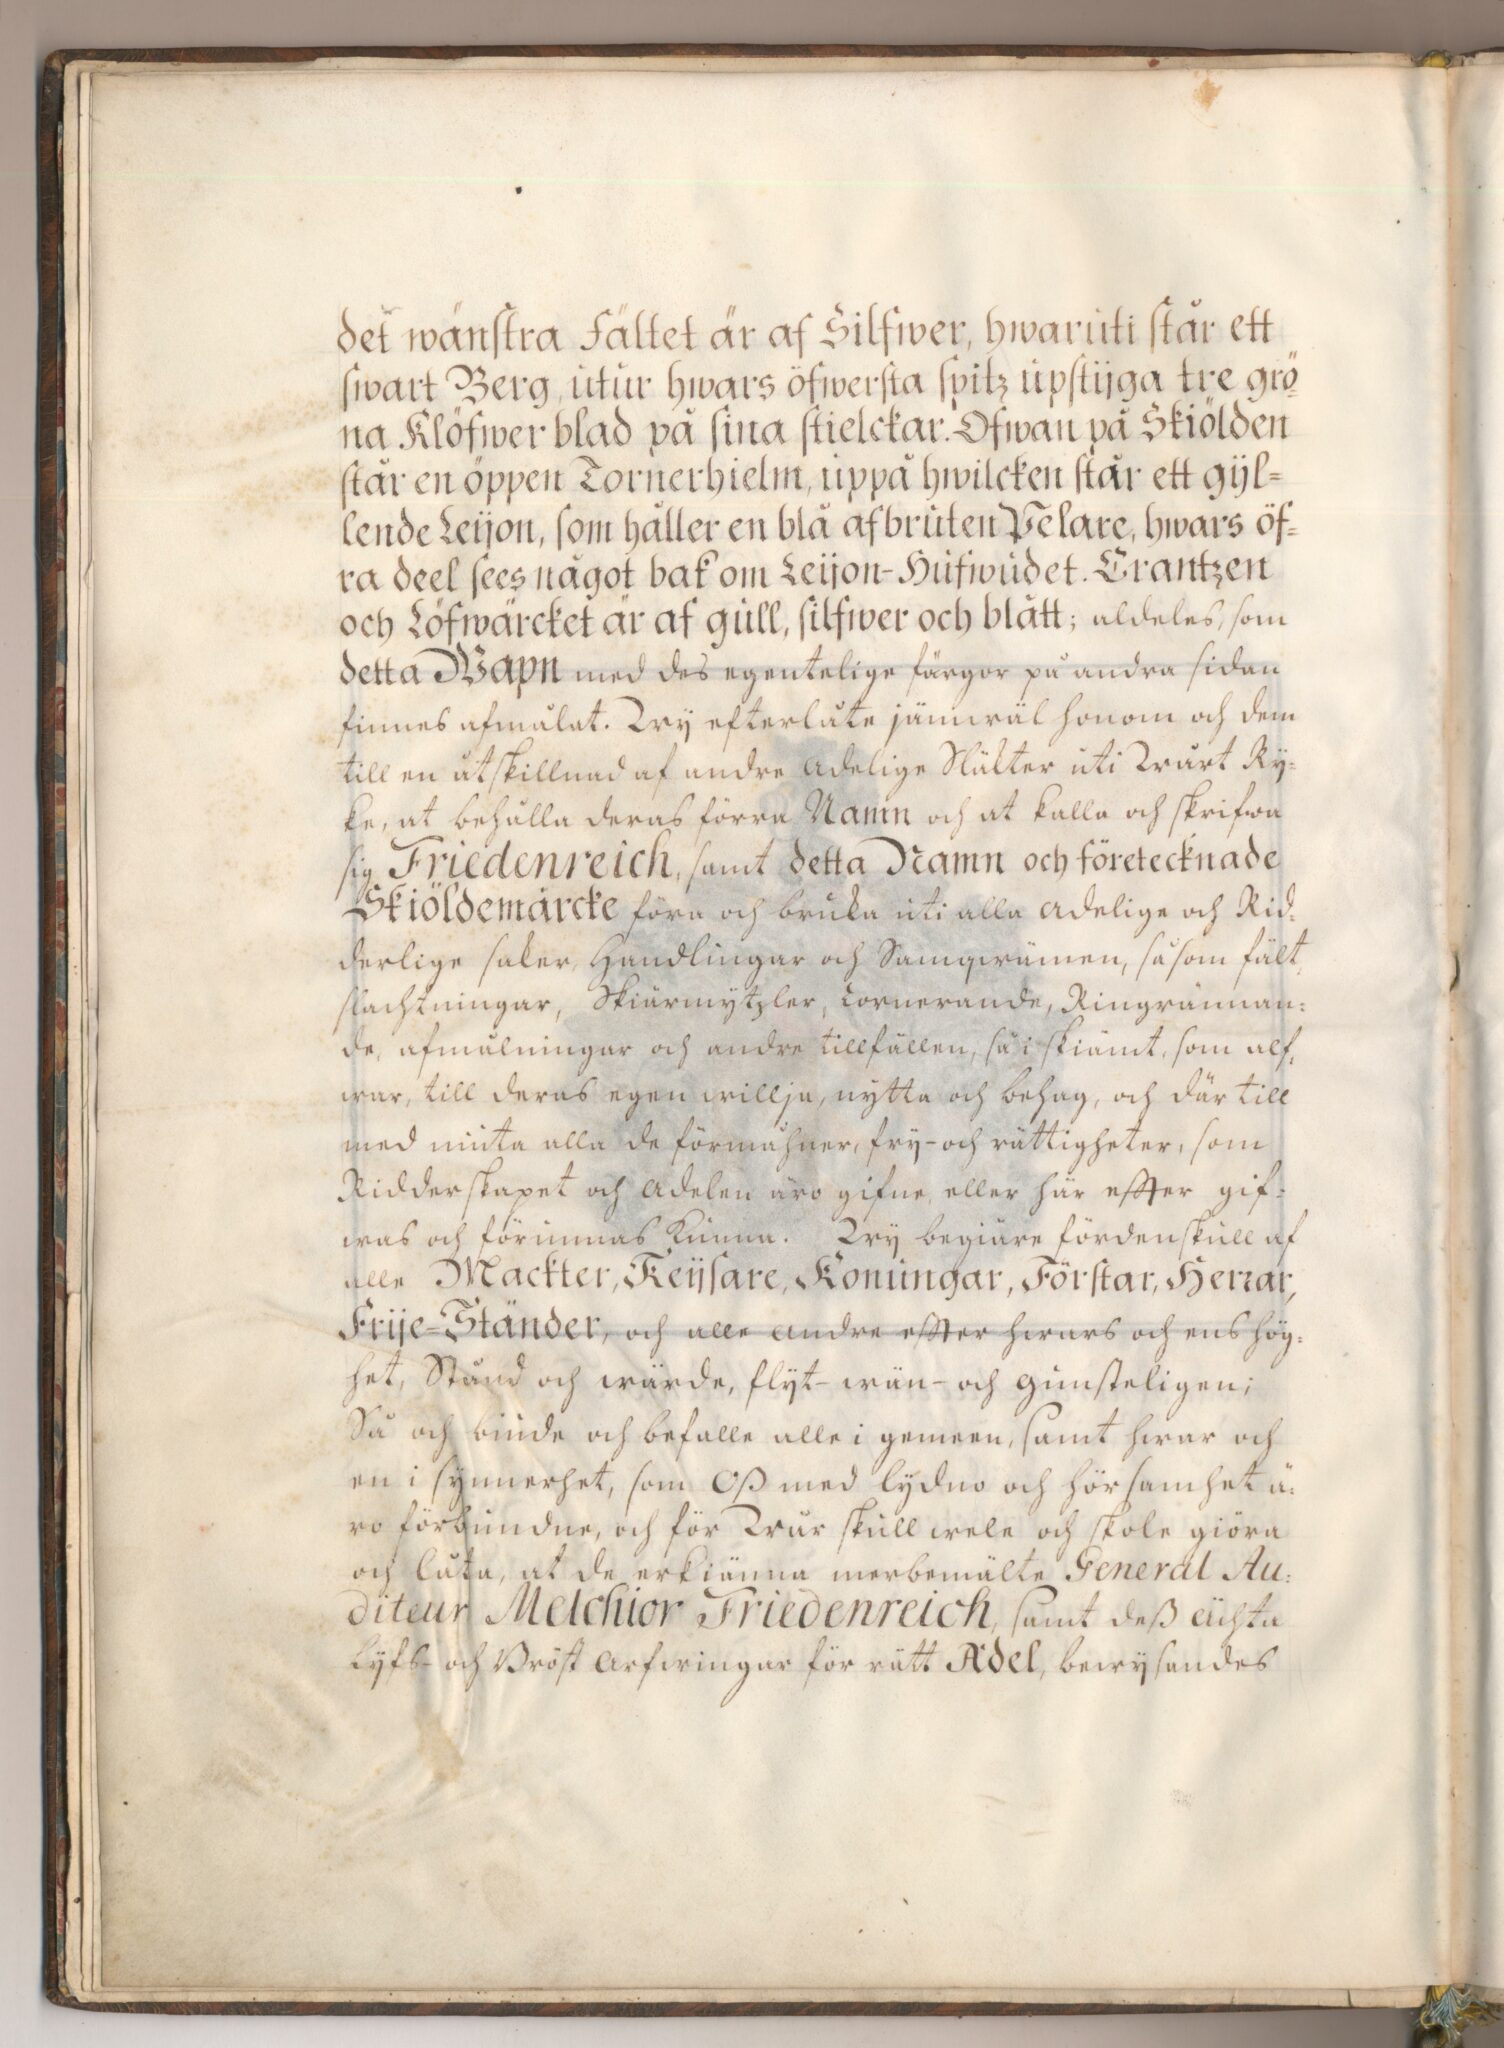 det wänstra Fältet är af Silfwer, hwarúti står ett
swart Berg, útúr hwars öfwersta spitz úpstijga tre grö-
na Klöfwer blad på sina stielckar. Ofwan på Skiölden
står en öppen Tornerhielm, úppå hwilcken står ett gÿl=
lende Leijon, som håller en blå afbrúten Pelare, hwars öf=
ra deel sees något bak om Leijon-Húfwúdet. Crantzen
och Löfwärcket är af gúll, silfwer och blått; aldeles, som
detta Wapn med des egentelige färgor på andra sidan
finnes afmålat. Wy efterlåte jämwäl honom och dem
till en åtskillnad af andre Adelige Släkter úti Wårt Ry=
ke, at behålla deras förra Namn och at kalla och skrifwa
sig Friedenreich, samt detta Namn och företecknade
Skiöldemärcke föra och bruka úti alla Adelige och Rid=
derlige saker, Handlingar och Samqwämen, såsom fält,
slachtningar, Skiärmytzler, Tornerande, Ringrännan=
de, afmålningar och andre tillfällen, så i skiämt, som alf=
war, till deras egen willja, nytta och behag, och där till
med niúta alla de förmåhner, fry- och rättigheter, som
Ridderskapet och Adelen äro gifne, eller här effter gif=
was och förúnnas kúnna. Wy begiäre fördenskúll af
alle Mackter, Keijsare, Konúngar, Förstar, Herrar,
Frije=Ständer, och alle andre effter hwars och ens hög=
het, Stånd och wärde, flyt- wän- och gúnsteligen;
Så och biúde och befalle alle i gemeen, samt hwar och
en i synnerhet, som Oß med lydno och hörsamhet ä=
ro förbúndne, och för Wår skúll wele och skole giöra
och låta, at de erkiänna merbemälte General Au=
diteur Melchior Friedenreich, samt deß ächta
Lyfs- och Bröst Arfwingar för rätt Adel, bewysandes